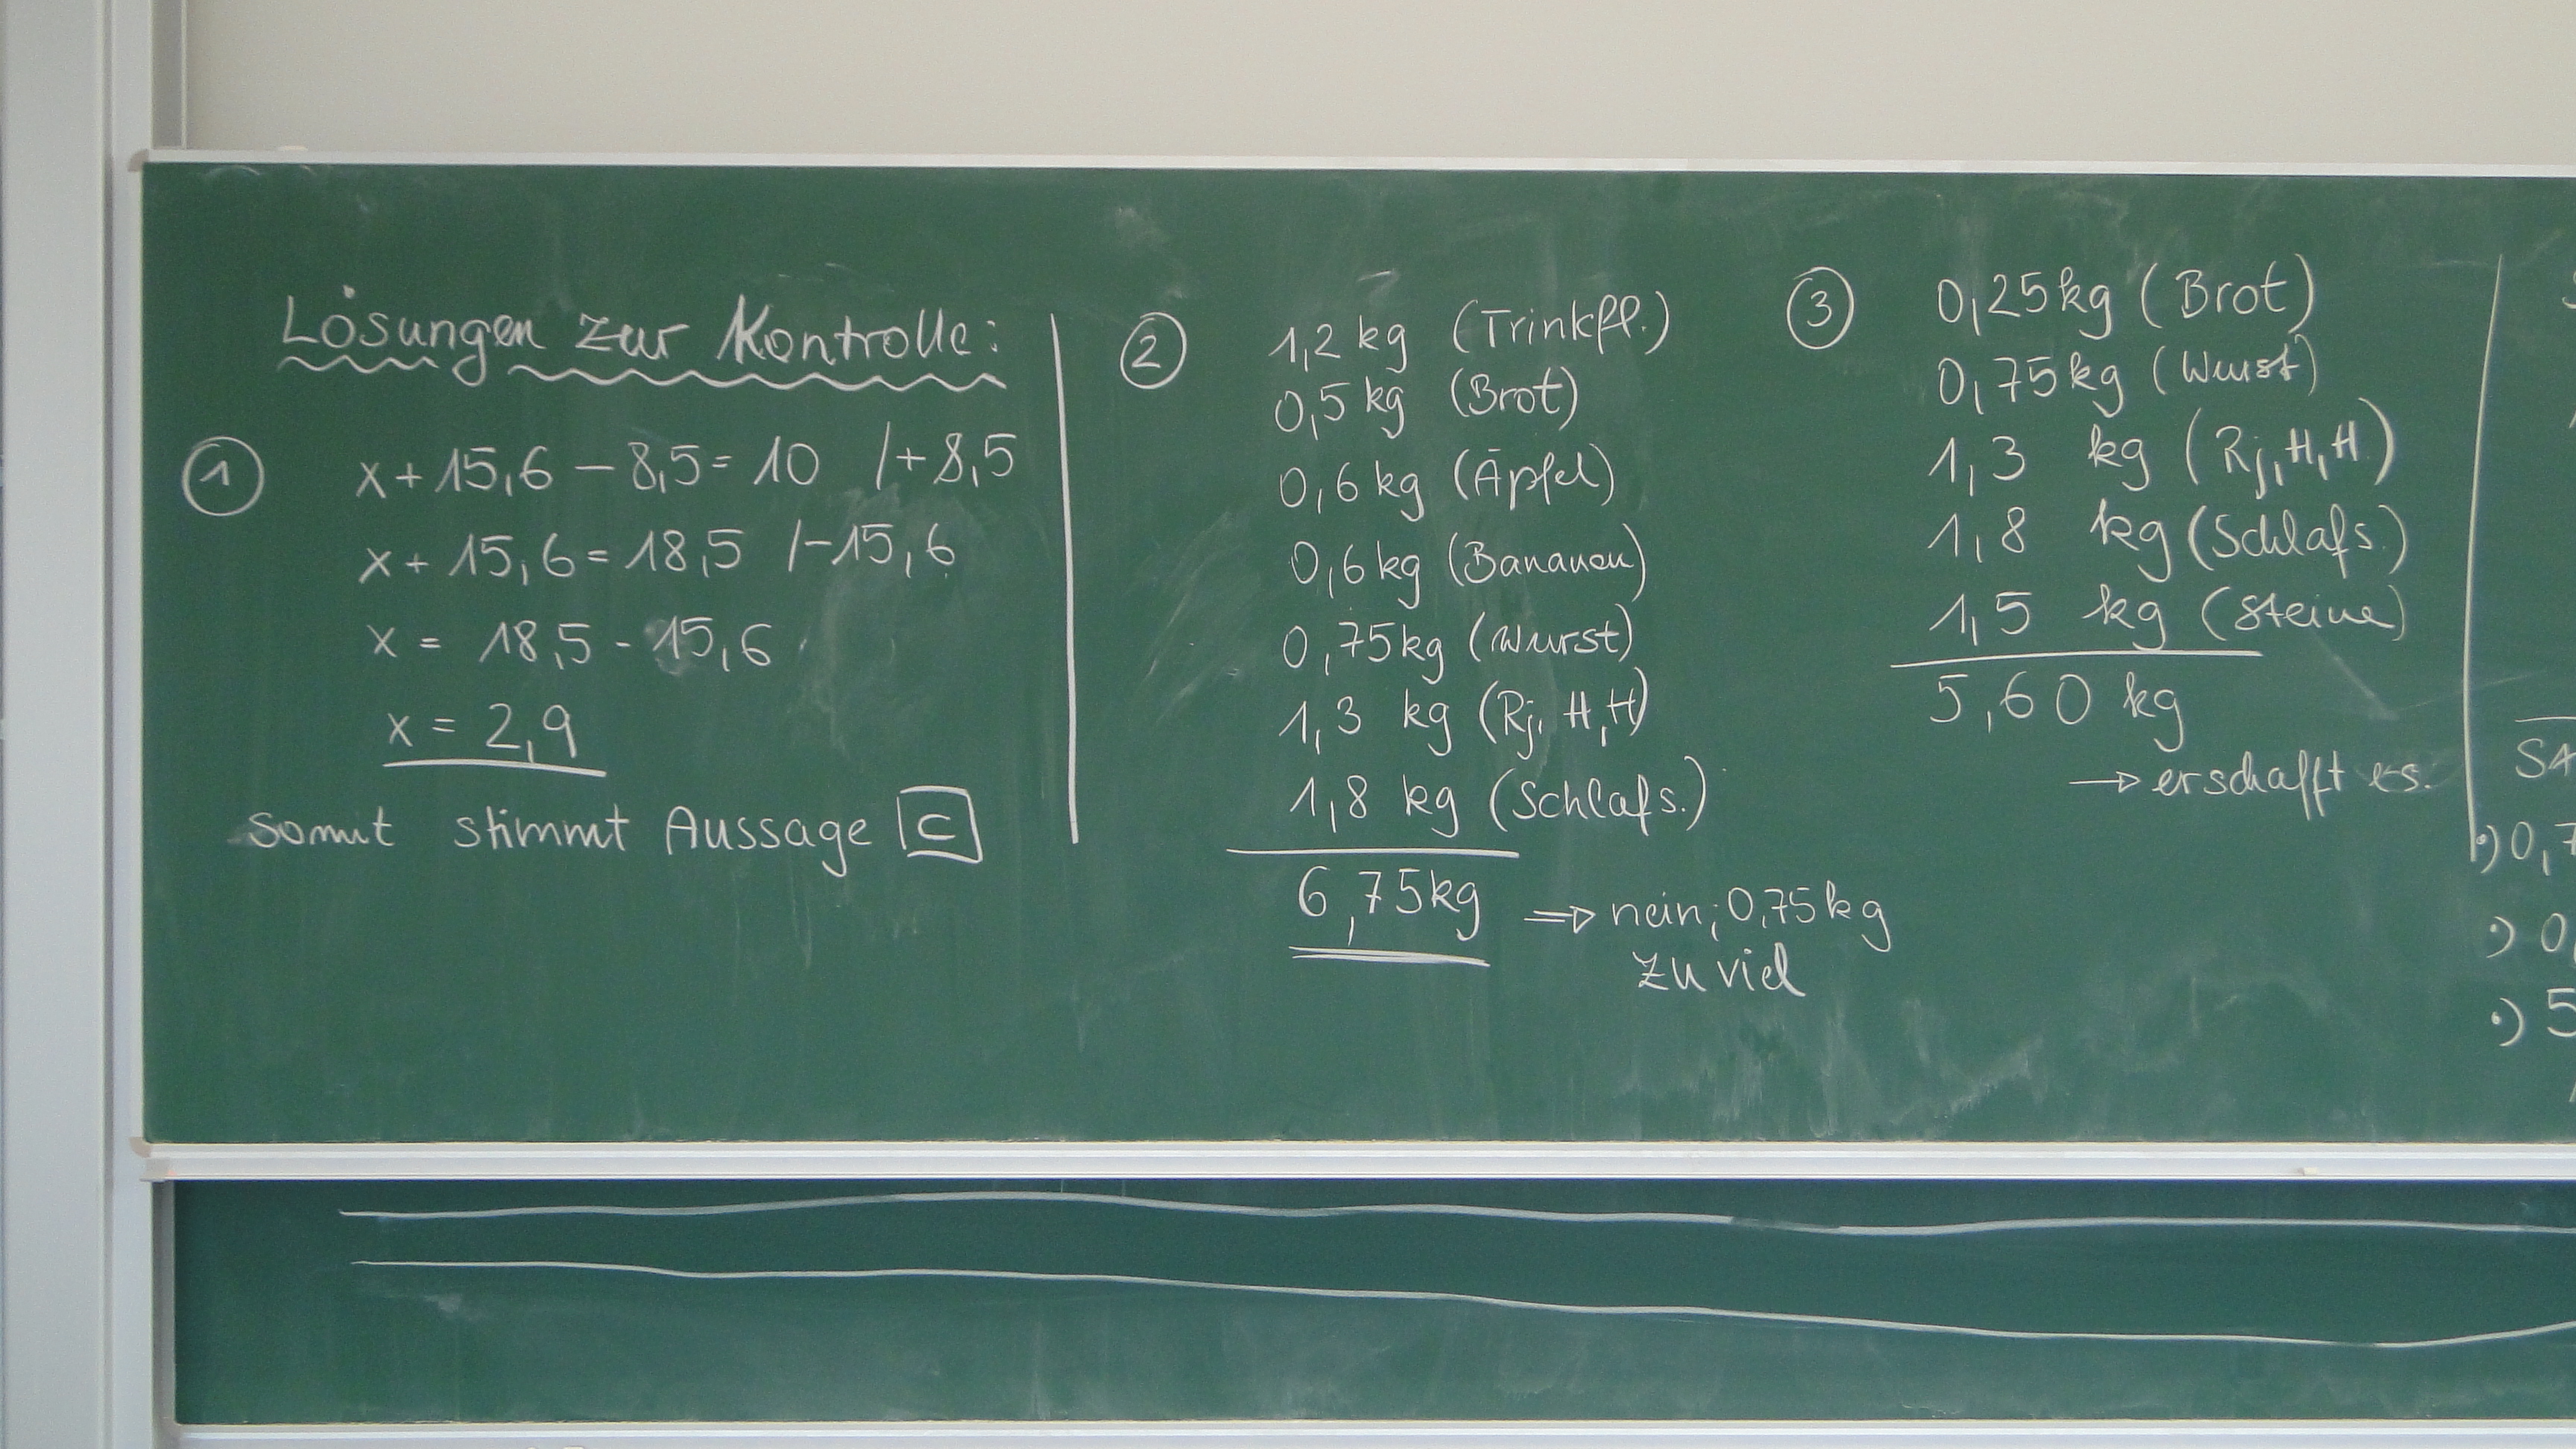 Lösungen zur Kontrolle:
① x + 15,6 – 8,5 = 10 /+ 8,5
x + 15,6 = 18,5 /–15,6
x = 18,5 - 15,6
x = 2,9
somit stimmt Aussage C
② 1,2 kg (Trinkfl.)
0,5 kg (Brot)
0,6 kg (Äpfel)
0,6 kg (Bananen)
0,75kg (Wurst)
1,3 kg (Rj, H, H)
1,8 kg (Schlafs.)
6,75kg ⇒ nein; 0,75kg
zu viel
③ 0,25kg (Brot)
0,75kg (Wurst)
1,3 kg (Rj, H, H)
1,8 kg (Schlafs.)
1,5 kg (Steine)
5,60 kg
→ er schafft es.
SA
·) 0,7
·) 0,
·) 5